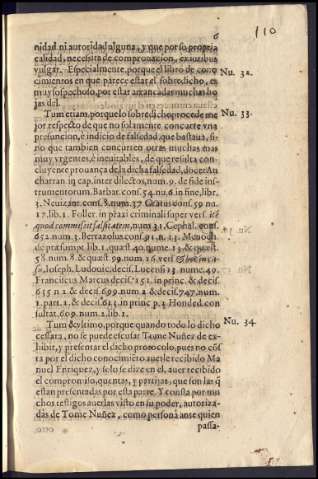 6
110
nidad ni autoridad alguna, y que por so propria
calidad, necesita de comprouacion, ex iuribus
vulgar. Especialmente, porque el libro de cono
cimientos en que parece estar el sobredicho, es
muy sospechoso, por estar arrancadas muchas ho
jas del.
Nu. 32.
Tum etiam, porque lo sobredicho procede me
jor respecto de que no solamente concurre vna
presuncion, e indicio de falsedad, que bastaua, si
no que tambien concurren otras muchas mas
muy vrgentes, e ineuitables, de que resulta con
cluyente prouança de la dicha falsedad, docent in
charran. in cap. inter dilectos, num. 9. de fide ins-
trumentorum. Barbat. conf. 54. nu. 6. in fine, libr.
3. Neuizan. conf. 8. num. 37. Gratus conf. 59. nu.
17. lib. 1. Foller. in praxi criminali super vers. ité
quod commissit falsitatem, num. 31. Cephal. conf.
652. num. 3. Bertazolus conf. 91. n. 13. Menoch.
de præsumpt. lib. 1. quæst. 40. nume. 13. & quæst.
58. num. 8. & quæst. 99. num. 16. vers.
su, Ioseph. Ludouic. decis. Lucens. 13. nume. 49.
Franciscus Marcus decis. 151. in princ. & decis.
635. n. 2. & decis. 699. num. 2. & decis. 747. num.
1. part. 1. & decis. 61. in princ. p. 3. Honded. con
sultat. 69. num. 2. lib. 1.
Nu. 33.
Tum & vltimo, porque quando todo lo dicho
cessara, no se puede escusar Tome Nuñez de ex-
hibir, y presentar el dicho protocolo, pues no cõs
ta por el dicho conocimiẽto auerle recibido Ma
nuel Enriquez, y solo se dize en el, auer recibido
el compromiso, quentas, y partijas, que son las q̃
estan presentadas por esta parte. Y consta por mu
chos testigos auerlas visto en su poder, autoriza-
das de Tome Nuñez, como persona ante quien
Nu. 34
passa-